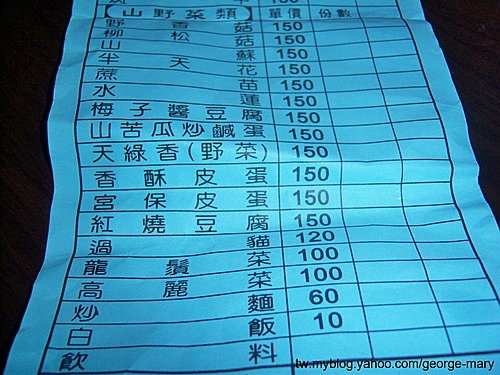 山野菜類 單價 份數
野香菇 150
柳松菇 150
山蘇 150
半天花 150
蔗苗 150
水蓮 150
梅子醬豆腐 150
山苦瓜炒鹹蛋 150
天綠香(野菜) 150
香酥皮蛋 150
宮保皮蛋 150
紅燒豆腐 150
過貓 120
龍鬚菜 100
高麗菜 100
炒麵 60
白飯 10
飲料
tw.myblog.yahoo.com/george-mary